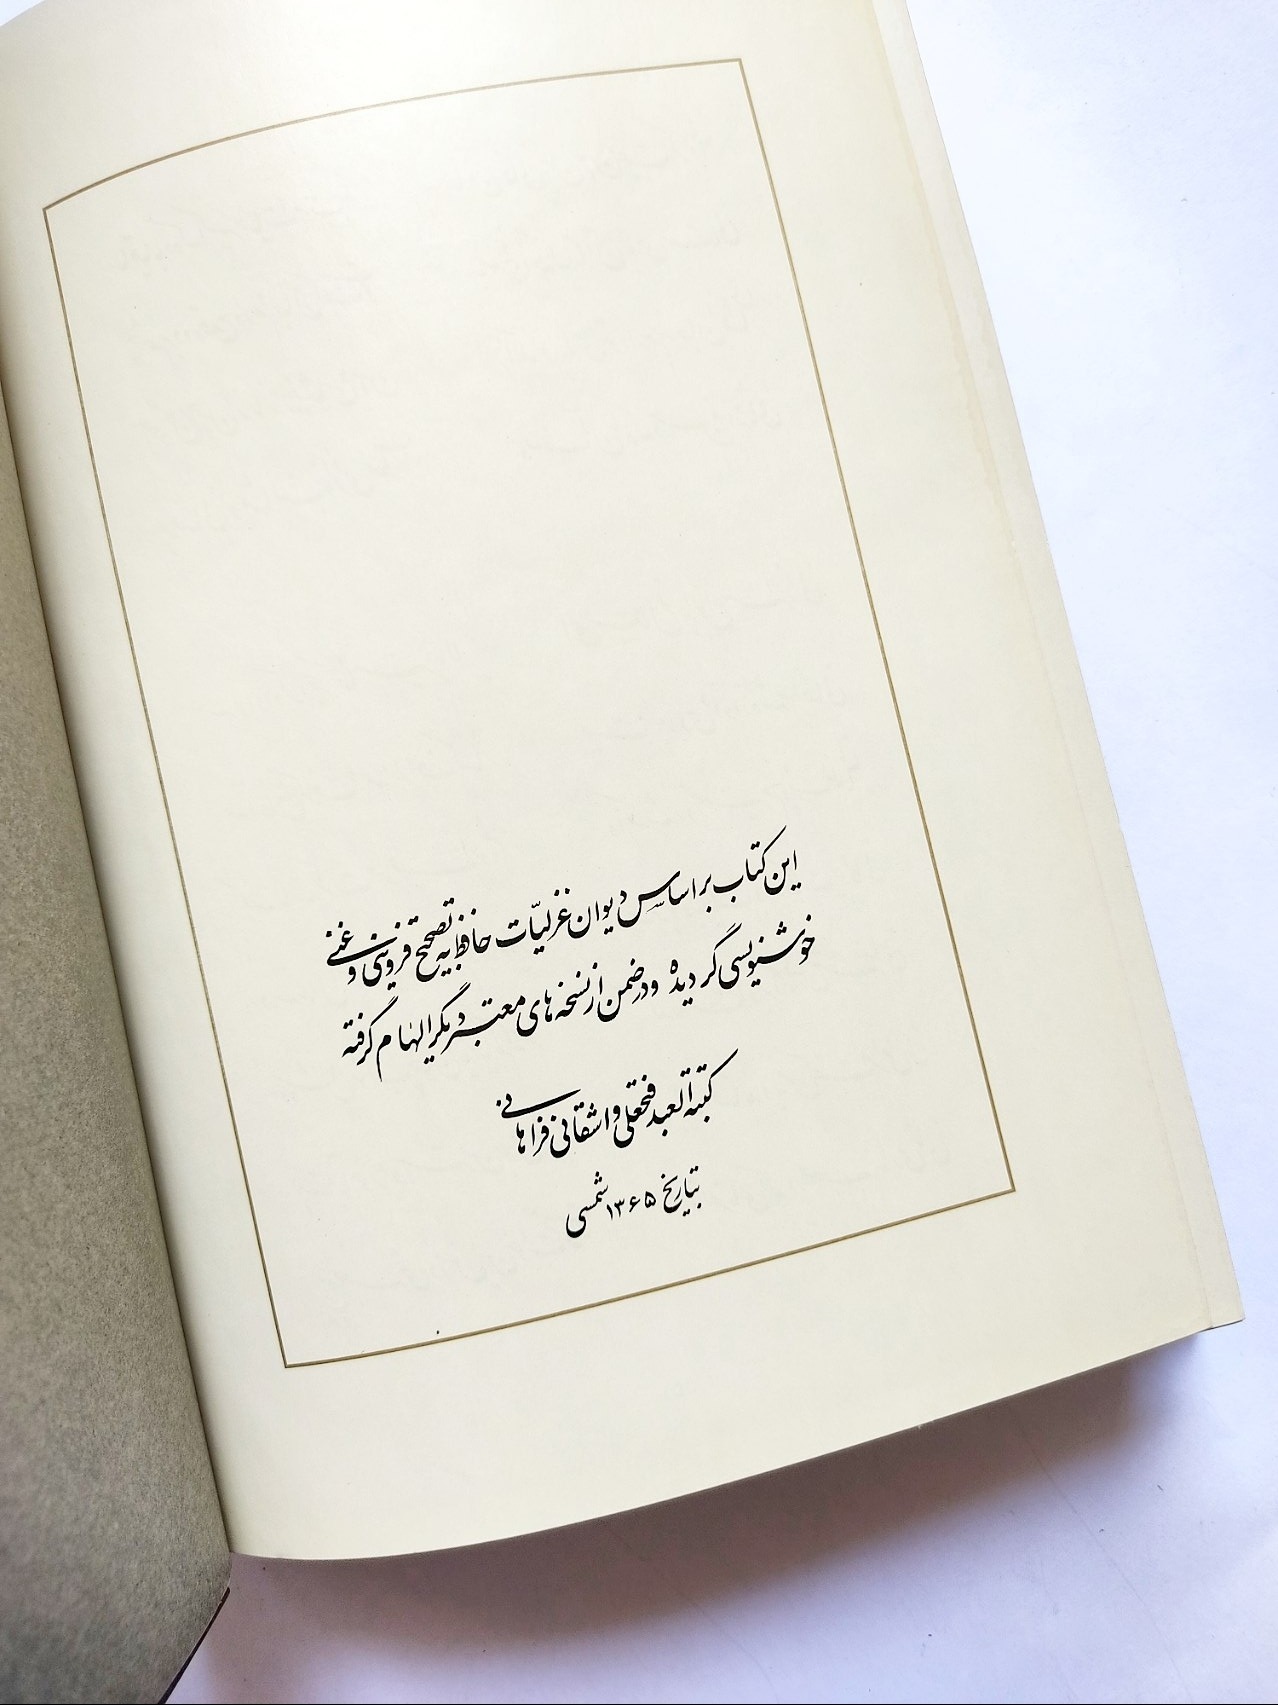 این کتاب بر اساس دیوان غزلیّات حافظ به تصحیح قزوینی و غنی
خوشنویسی گردیده و در ضمن از نسخه های معتبر دیگر الهام گرفته
کتبه العبد فتحعلی واشقانی فراهانی
بتاریخ ۱۳۶۵ شمسی